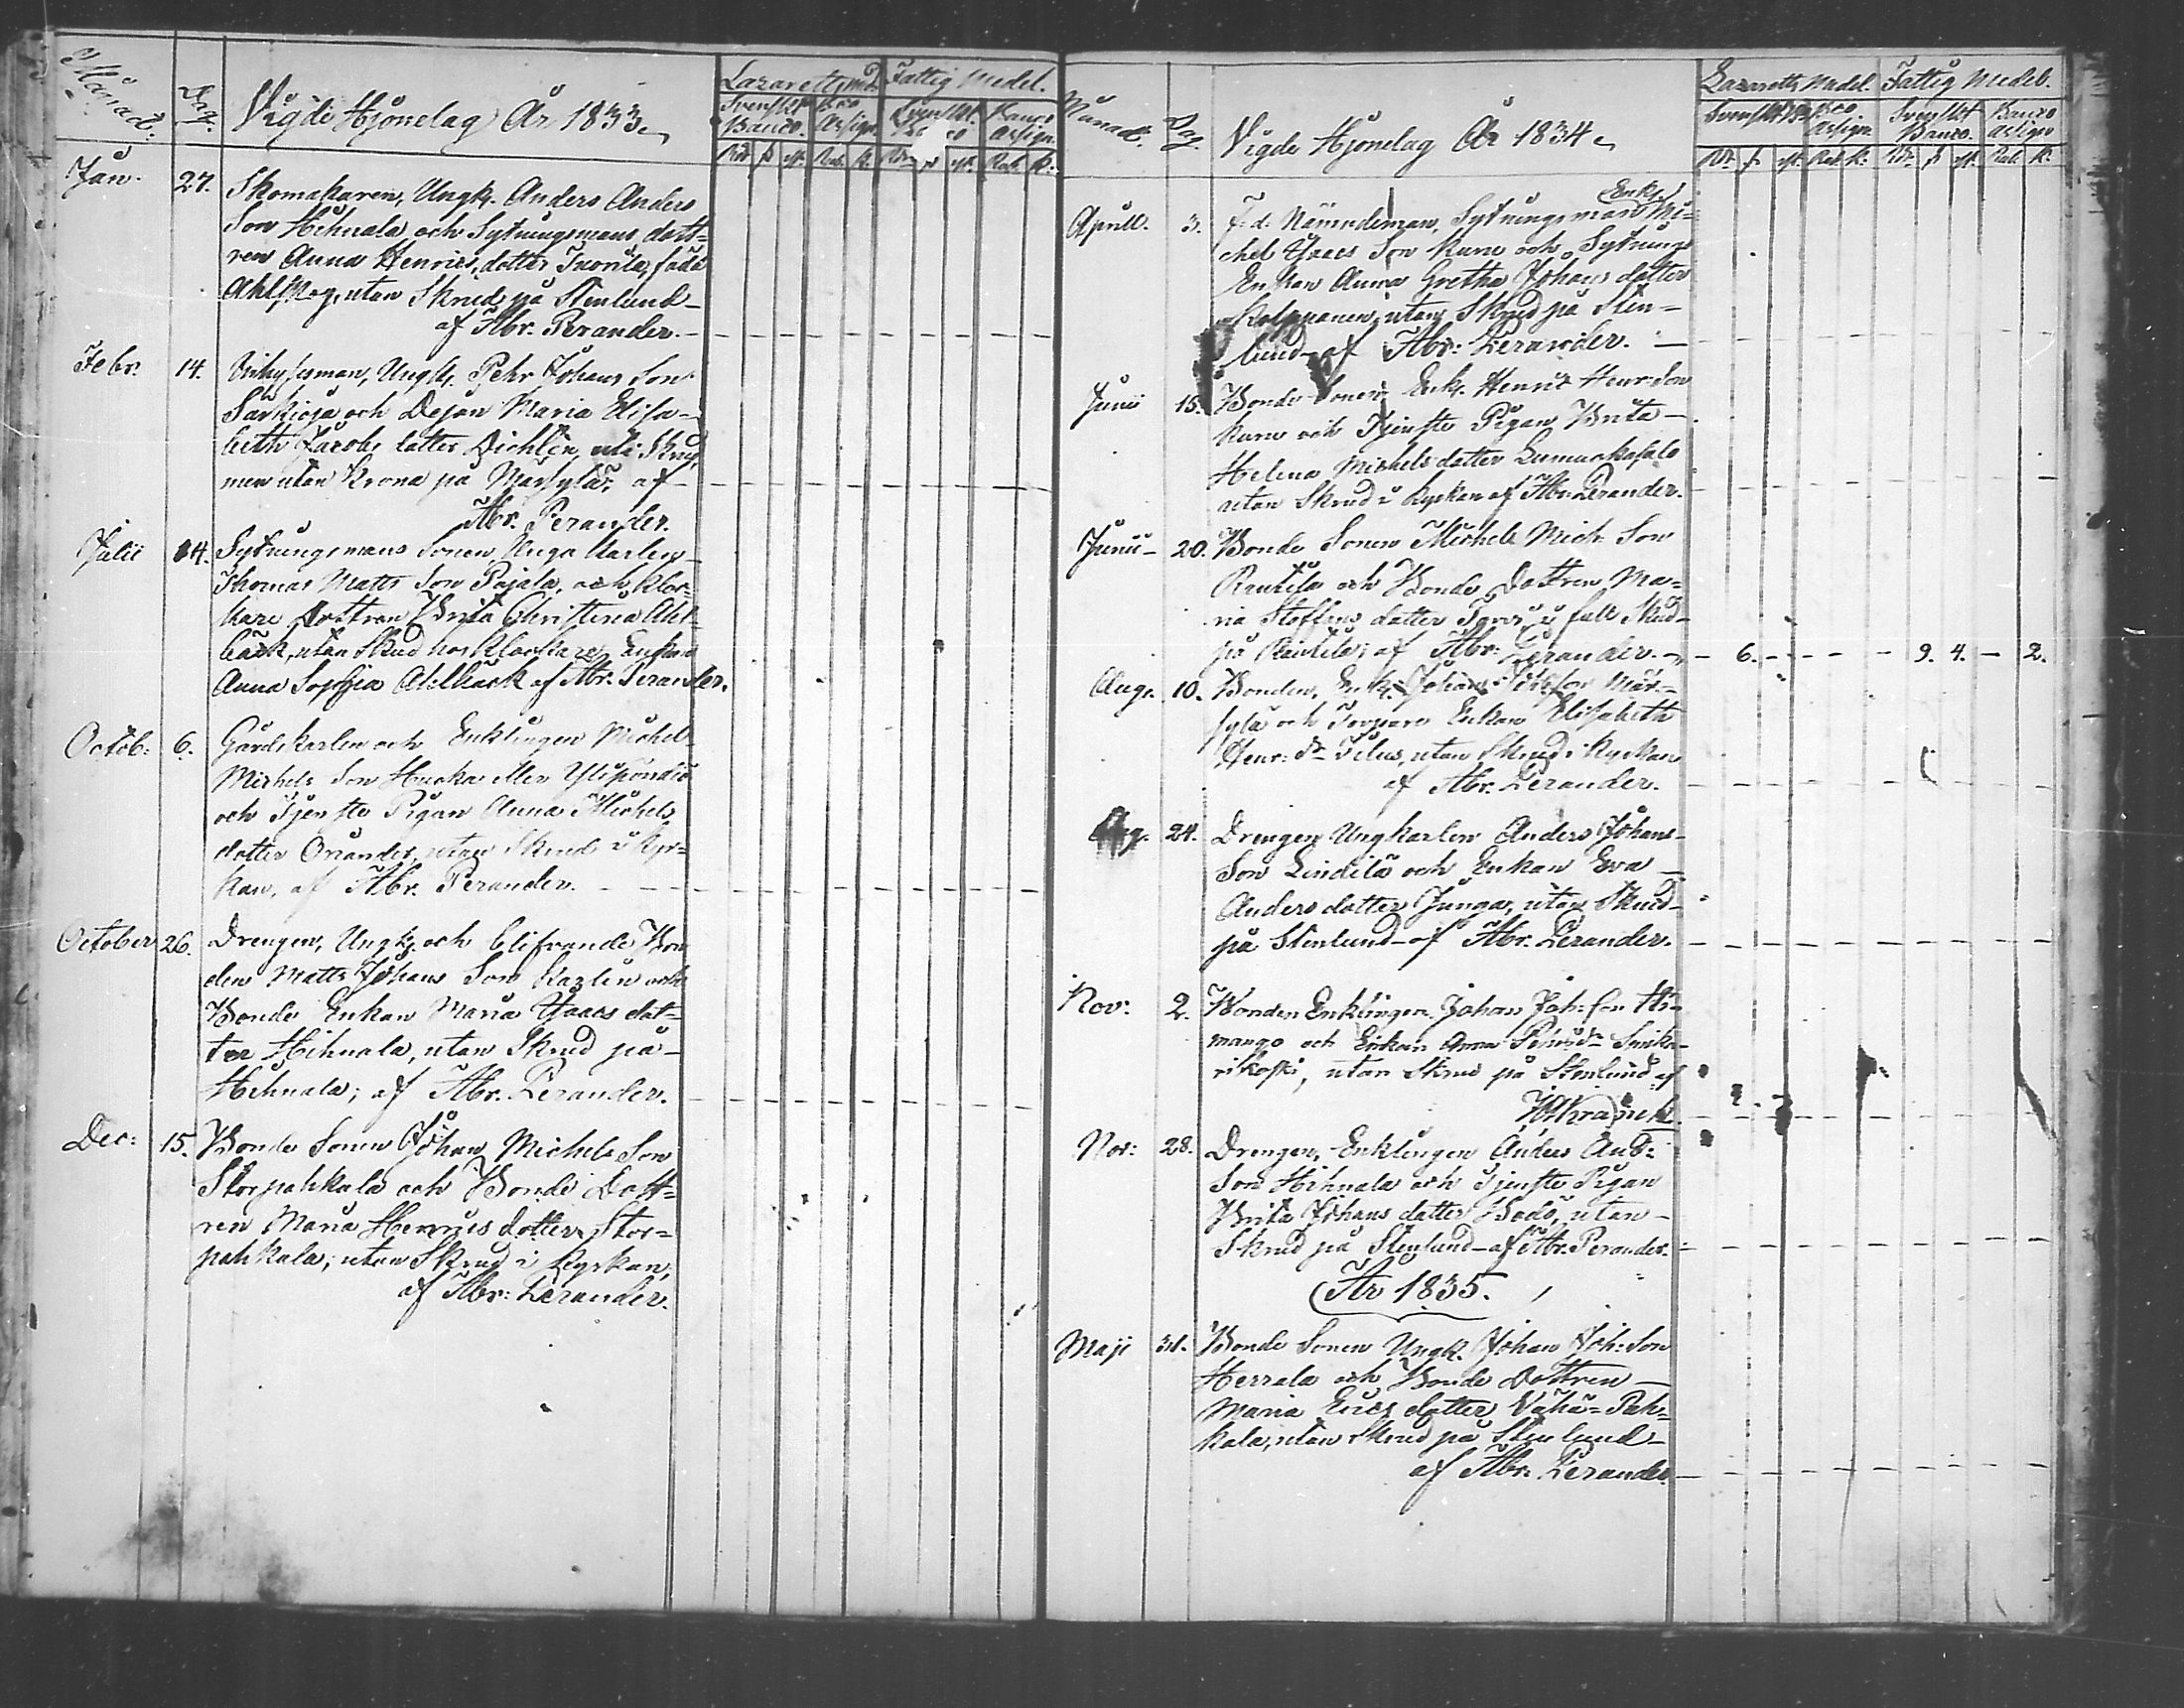 Månad. Dag. Vigde Hjonelag År 1833
Lazaretts med. Fattig Medel.
Svenskt Banco. Bco Assign. Svenskt Banco Assign.
Jan. 27. Skomakaren, Ungk. Anders Anders
Son Hihnala och Sytningsmans dott=
ren Anna Henrics dotter Tuorila, född
Ahlskog, utan Skrud på Stenlund
af Abr. Perander.
Febr: 14. Ungk. Pehr Johans Son
Särkioja och Dejan Maria Elisa=
beth Jacobs dotter Dichlin, uti Skrud,
men utan Krona på Märsylä; af
Abr. Perander.
Julii 14. Sytningsmans Sonen Unga Karlen
Thomas Matts Son Pajala, och Kloc=
kare dottren Brita Christina Ahl=
bäck, utan Skrud hos Klockare Enkan
Anna Sophia Ahlbäck af Abr. Perander.
Octob: 6. Gårdskarlen och Enklingen Michel
Michels Son Huska eller Ylipondio
och Tjenste Pigan Anna Michels
dotter Oriander, utan Skrud i Kyr=
kan, af Abr. Perander.
October 26. Drengen, Ungk. och blifvande Bon
den Matts Johans Son Karlin och
Bonde Enkan Maria Isaacs dot=
ter Hihnala, utan Skrud på
Hihnala; af Abr. Perander.
Dec: 15. Bonde Sonen Johan Michels Son
Storpahkala och Bonde Dott=
ren Maria Henrics dotter Stor=
pahkala; utan Skrud i Kyrkan;
af Abr: Perander.
Månad. Dag. Vigde Hjonelag År 1834
Lazaretts Medel. Fattig Medel.
Svenskt Bco Assign. Svenskt Banco. Banco Assign
Aprill. 3. F. d. Nämndeman, Sytningsman Enkl. Mi=
chel Isaacs Son Kune och Sytnings
Enkan Anna Gretha Johans dotter
utan Skrud på Sten=
lund af Abr: Perander.
Junii 15. Bonde Sonen Enkl. Henric Henr: Son
Kune och Tjenste Pigan Brita
Helena Michels dotter Lumukasalo
utan Skrud i Kyrkan af Abr: Perander.
Junii 20. Bonde Sonen Michel Mich. Son
Rautila och Bonde Dottren Ma=
ria Stoffens dotter i full Skrud
på Rautila; af Abr: Perander. 6. 9. 4. 2.
Aug. 10. Bonden, Enkl. Johan Märs=
sylä och Torpare Enkan Elisabeth
Henr: dr utan Skrud i Kyrkan
af Abr. Perander.
Aug. 24. Drengen Ungkarlen Anders Johans
Son Lindilä och Enkan Eva
Anders dotter Junga, utan Skrud
på Stenlund af Abr. Perander.
Nov: 2. Bonden Enklingen Johan Joh: son Hi=
mango och Enkan Anna
utan Skrud på Stenlund af
Nov: 28. Drengen, Enklingen Anders And:
Son Hihnala och Tjenste Pigan
Brita Johans dotter Bodö, utan
Skrud på Stenlund af Abr. Perander.
År 1835.
Maji 31. Bonde Sonen Ungk. Johan Joh: Son
Herrala och Bonde Dottren
Maria Erics dotter Vähä=Pah=
kala, utan Skrud på Stenlund
af Abr: Perander